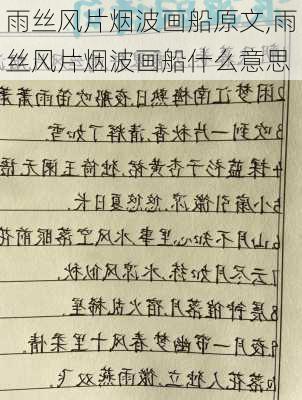 雨丝风片烟波画船原文,雨
丝风片烟波画船什么意思
2闲梦江南梅熟日夜船吹笛雨萧萧
3吹到一片秋香,清辉了如雪.
4揉蓝衫子杏黄裙,独倚玉阑无语
小扇引微凉,悠悠夏日长.
6山月不知心里事,水风空落眼前花
7云尽月如练,水凉风似秋.
8晨钟催落月,宿火乱稀星.
夜月一帘幽梦,春风十里柔情.
落花人独立,微雨燕双飞.